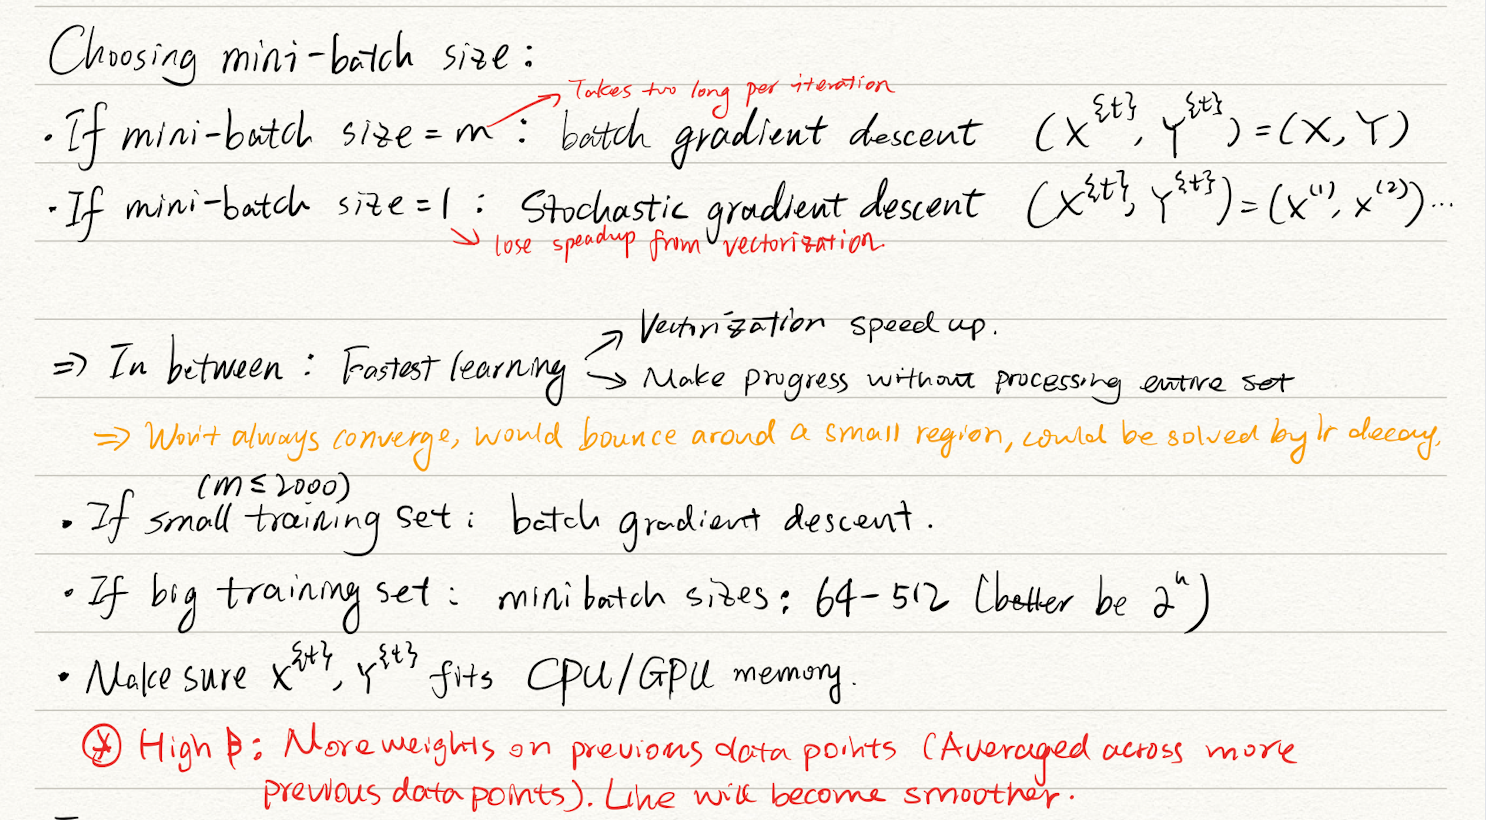 Choosing mini-batch size:
Takes too long per iteration
· If mini-batch size = m : batch gradient descent (X^{t}, Y^{t}) = (X, Y)
· If mini-batch size = 1 : Stochastic gradient descent (X^{t}, Y^{t}) = (x^(1), x^(2)) ...
lose speadup from vectorization.
Vectorization speed up.
⇒ In between : Fastest learning
Make progress without processing entire set
⇒ Won't always converge, would bounce around a small region, could be solved by lr decay.
(m ≤ 2000)
· If small training set : batch gradient descent.
· If big training set : minibatch sizes : 64 - 512 (better be 2^n)
· Make sure X^{t}, Y^{t} fits CPU/GPU memory.
High β: More weights on previous data points (Averaged across more
previous data points). Line will become smoother.